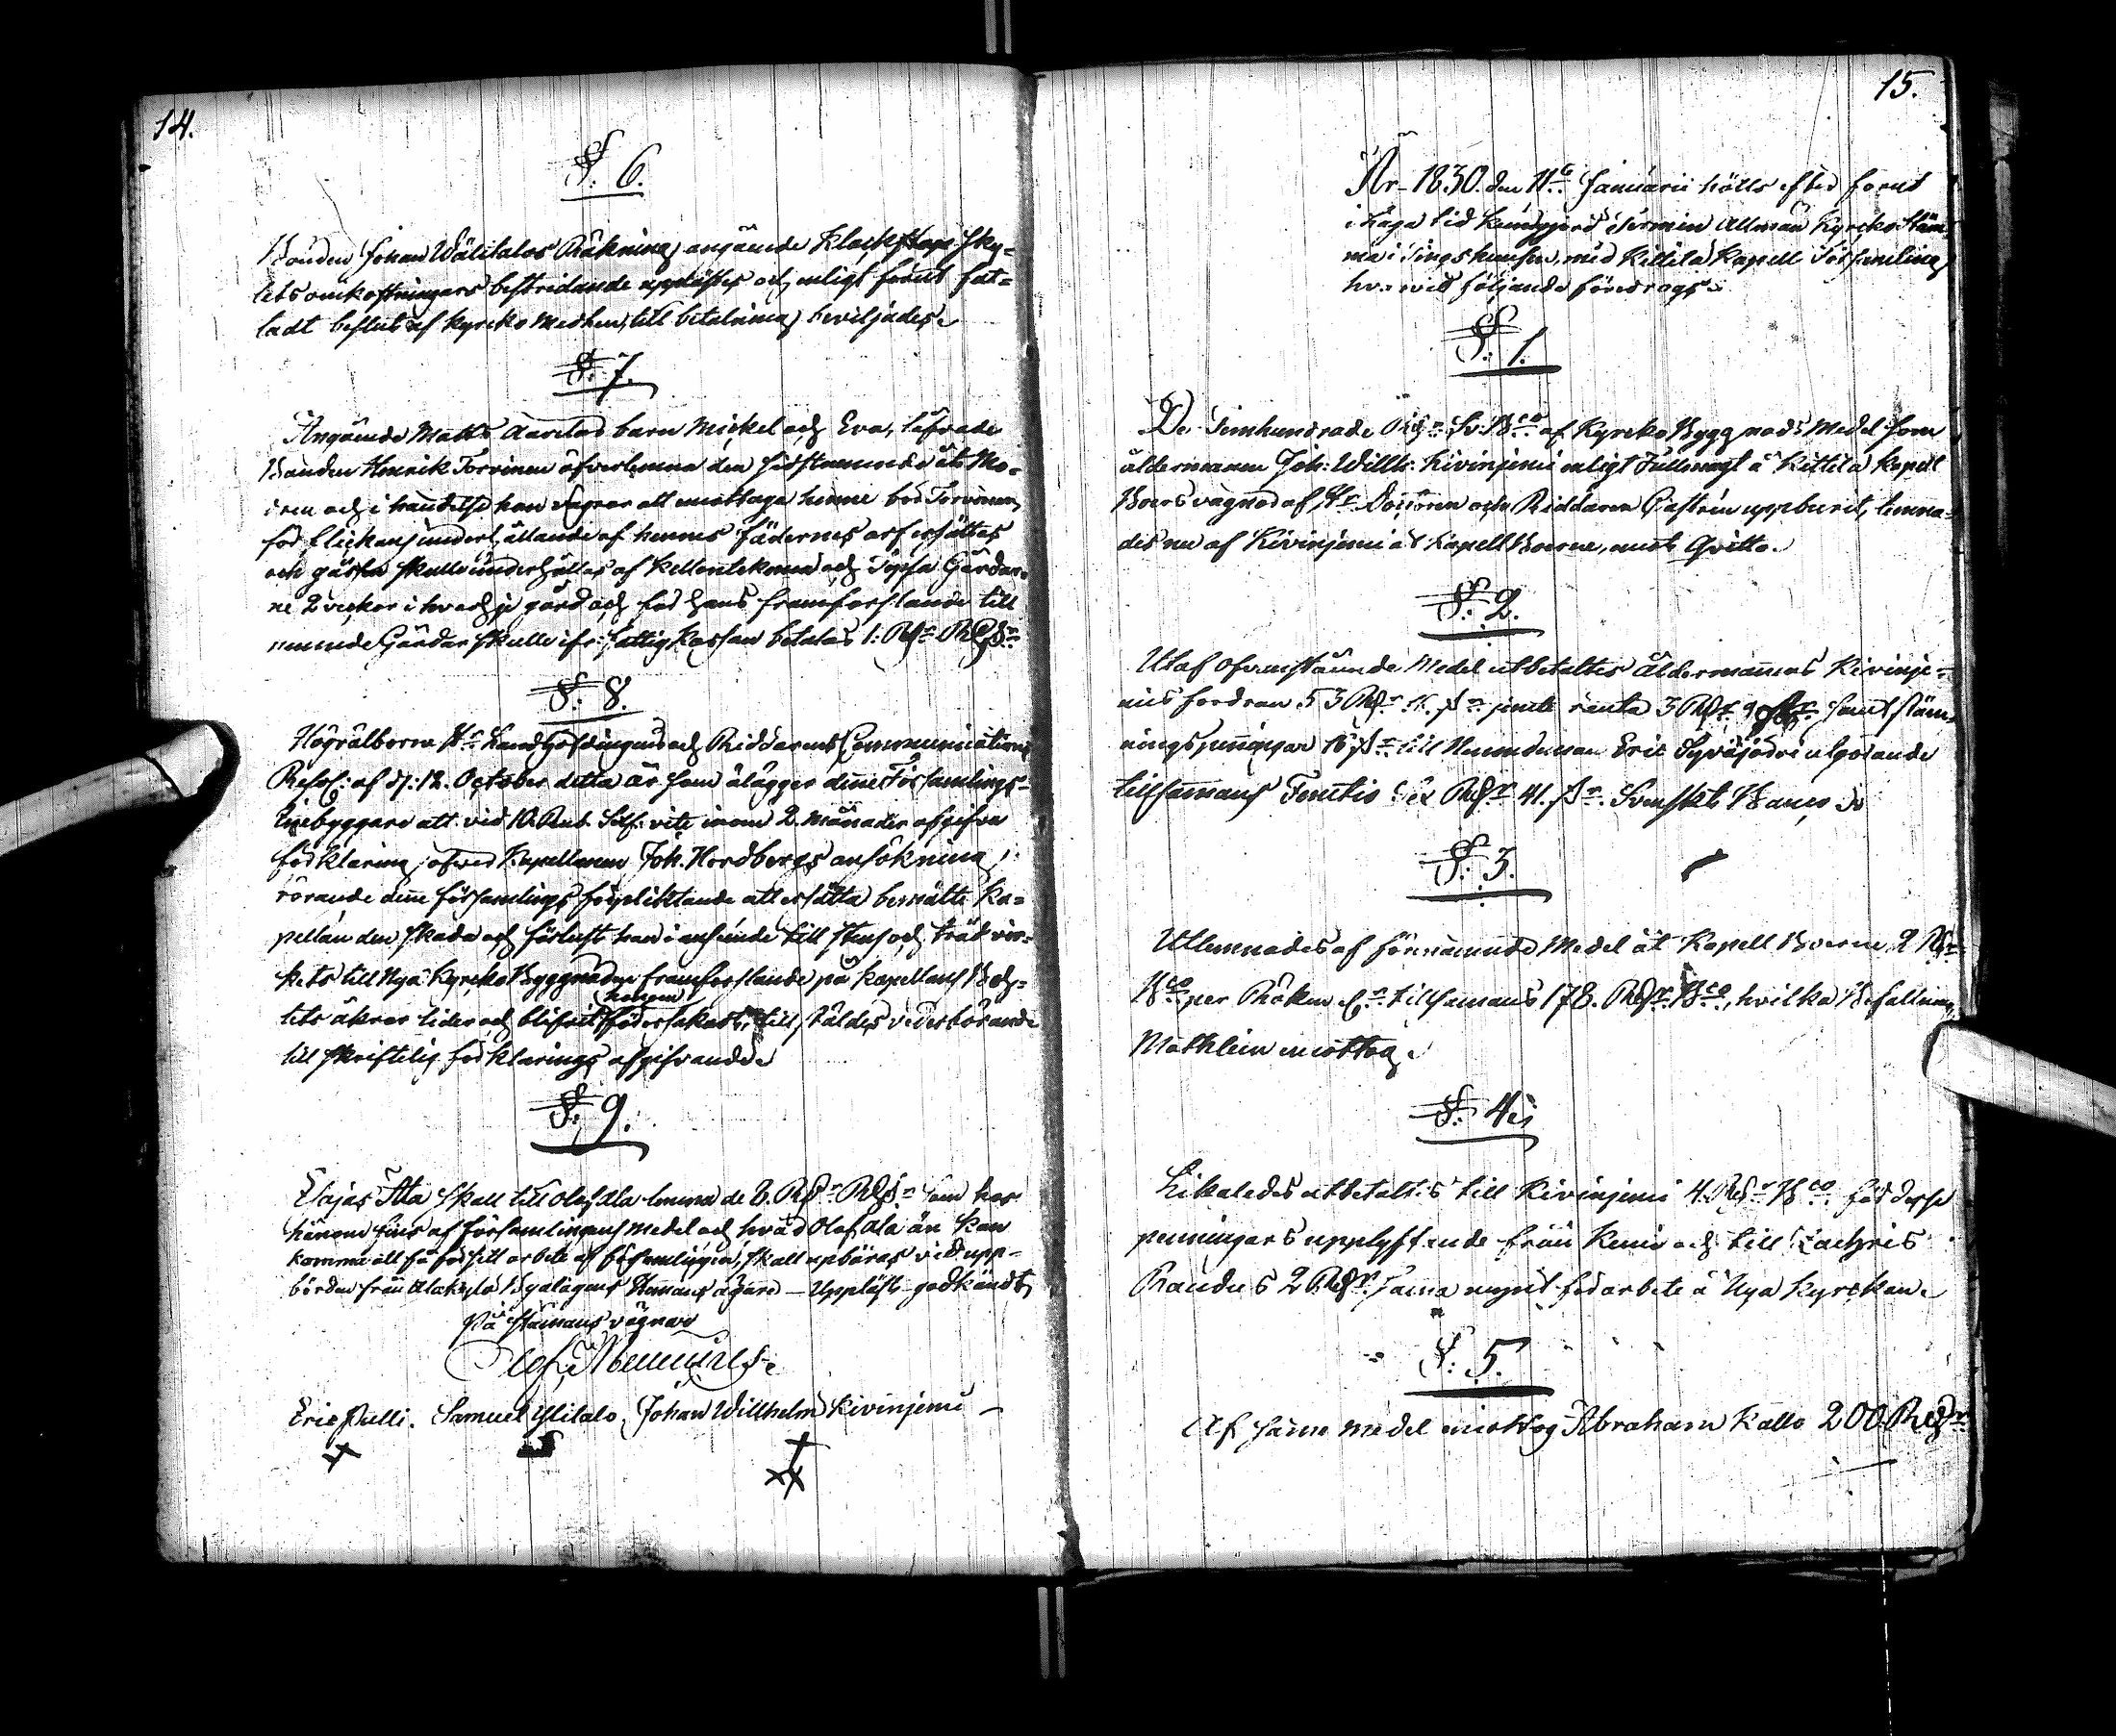 14.
§. 6.
Bonden Johan Wälitalos Räkning angående Klockstape sky-
lets omkostningars bestridande upplästes och enligt förut fat-
tadt beslut af Kyrko Medlen, till betalning beviljades.
§. 7.
Angående Matts barn Mickel och Eva, lofvade
Bonden Henrik Torvinen öfverlemna den sidstnemnde åt Mo-
dren och i händelse hon vägrar att emottaga henne bör Torvinen
för flickans underhållande af hennes fädernes arf ersättas
och skulle underhållas af och Gårdar-
ne 2 veckor i hvarje gård och för hans framforslande till
nemnde Gårdar skulle ifr: fattig Kassan betalas 1. Rdr Rgs
§. 8.
Högvälborne Hr LandsHöfdingens och Riddarens Communications
Resol: af d: 12. October detta år som ålägger denne Församlings-
Innebyggare att vid 10. Rub. Silf. vite inom 2. Månader afgifva
förklaring öfver Kapellanen Joh. Nordbergs ansökning
rörande denne församlings förpliktande att ersätta bemälte Ka-
pellan den skada och förlust han i anseende till stens och träd vir-
kets till Nya Kyrko Byggnaden framforslande på Kapellans Bohl-
tets åkrar lider och blifvit honom förorsakadt, vederbörande
till skriftelig förklarings afgifvande.
§. 9.
Elajas Alla skall till Olof Ala lemna de 8. Rdr Rgs som hos
honom fins af församlingens medel och hvad Olof Ala än kan
komma att få för sitt arbete af församlingen, skall upbäras vid upp-
börden från Alakylä Byalagens Hemans ägare – Uppläst – godkändt,
På Stämans vägnar
Eric Pulli. Samuel Ylitalo, Johan Willhelm Kivinjemi
15.
År 1830. den 11te Januarii hölls efter förut
i laga tid kungjord Termin Allmän Kyrko Stäm-
ma i Tings med Kittilä Kapell Församling
hvarvid följande föredrogs.
§. 1.
De Femhundrade Rdr Sv: Bco af Kyrko Byggnads Medel som
åldermannen Joh: Willh: Kivinjemi enligt Fullmagt å Kittilä Kapell
Boers vägnar af Hr Doctoren och Riddaren Castrén uppburit, lemna-
des nu af Kivinjemi åt Kapell Boerne, emot Qvitto.
§. 2.
Utaf ofvanstående Medel utbetaltes åldermannens Kivinje-
mis fordran 53 Rdr 16. sk jemte ränta 3 Rdr 9 samt stäm-
ningspenningar 16 sk till Nemndeman Eric Syväjärvi utgörande
tillsamans Femtio Sex Rdr 41. sk. Svenskt Banco.
§. 3.
Utlemnades af förrnemnde Medel åt Kapell Boerne 2 Rdr
Bco per Rök tillsamans 178. Rdr Bco, hvilka Befallnings
Mathlein emottog.
§. 4.
Likaledes utbetaltes till Kivinjemi 4. Rdr Bco för dessa
penningars upplyftande från Kemi och till Zachris
Raudus 2 Rdr sama mynt för arbete å Nya Kyrckan.
§. 5.
Af same medel emottog Abraham Kallo 200 Rdr